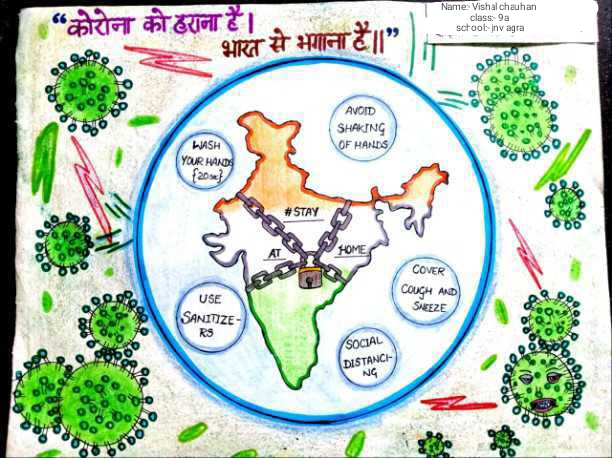 “कोरोना को हराना है।
भारत से भगाना है॥”
Name:- Vishal chauhan
class:- 9a
school:- jnv agra
WASH
YOUR HANDS
{20sec}
AVOID
SHAKING
OF HANDS
#STAY
AT HOME
COVER
COUGH AND
SNEEZE
USE
SANITIZE-
RS
SOCIAL
DISTANCI-
NG